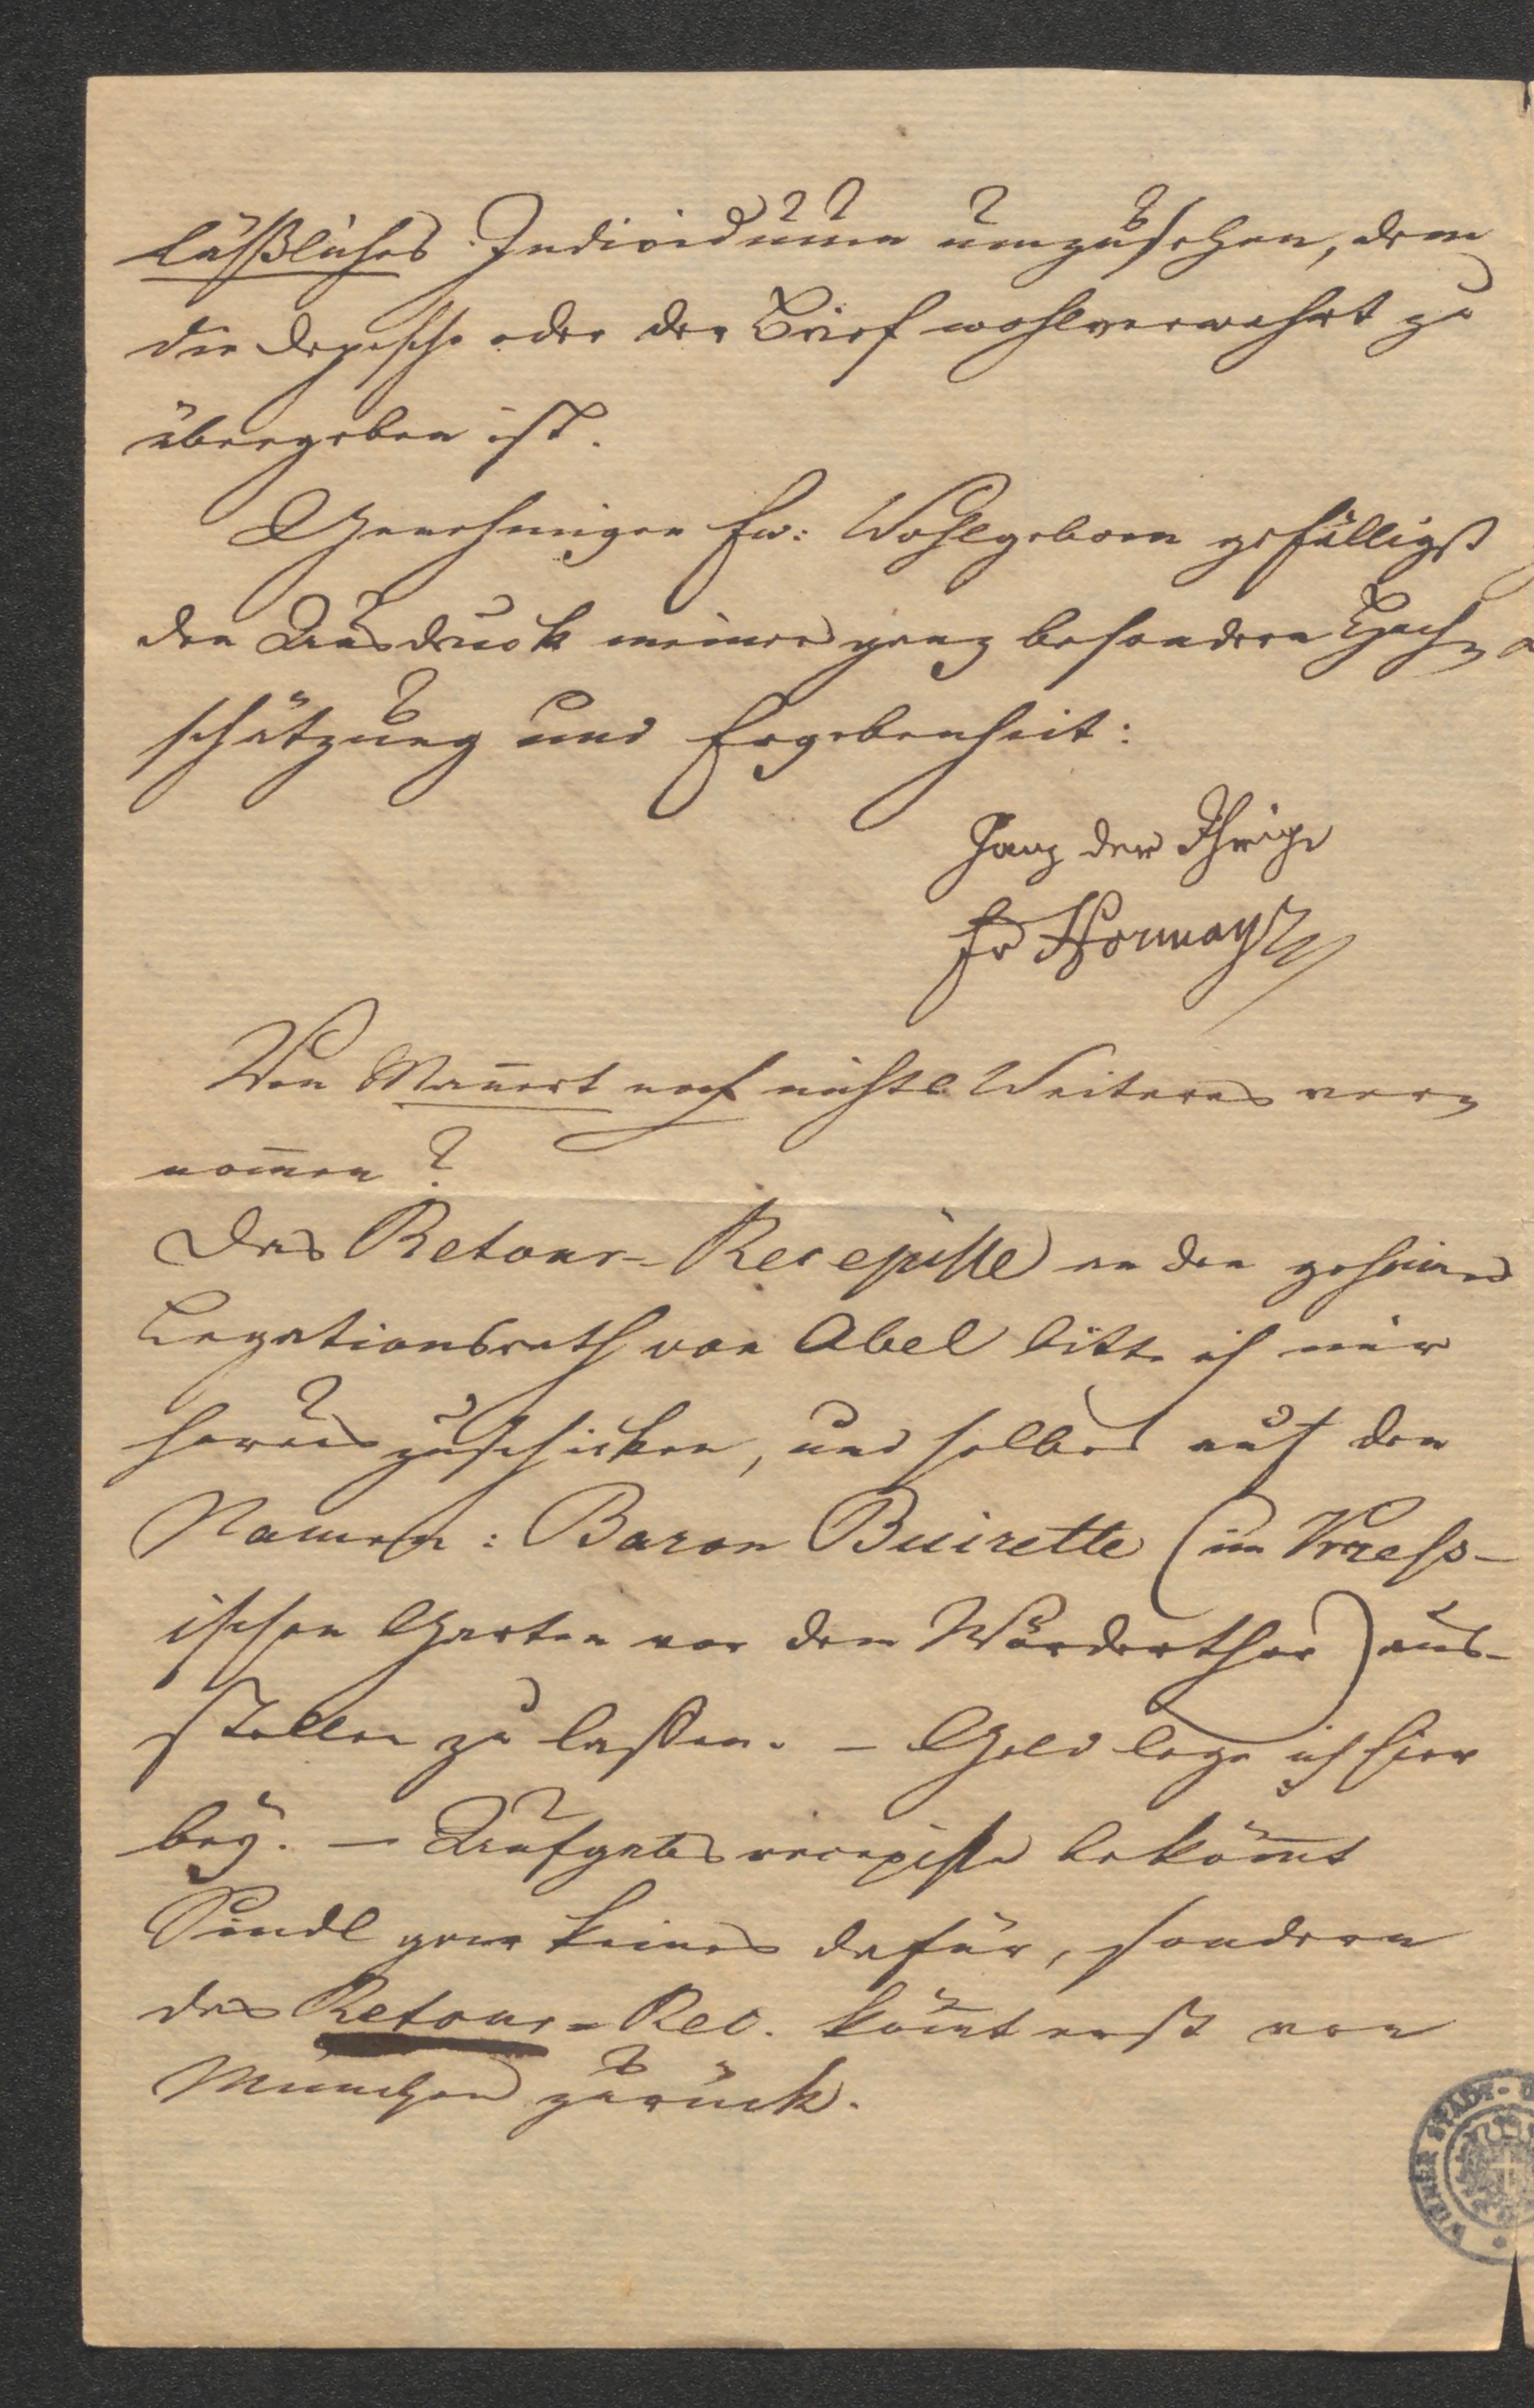 läßliches Individuum umzusehen, dem
die Depesche oder der Brief wohlverwahrt zu
übergeben ist.
Genehmigen Ew: Wohlgeborn gefälligst
den Ausdruck meiner ganz besondern Hoch-
schätzung und Ergebenheit:
Ganz der Ihrige
Fr Hormayr
Von Mannert noch nichts Weiteres ver-
nommen?
Das Retour-Recepisse an den geheimen
Legationsrath von Abel bitte ich mir
herauszuschicken, und selbes auf den
Namen: Baron Buirette (im Kress-
ischen Garten vor dem Wörderthor) aus-
stellen zu lassen. – Geld lege ich hier
bey. – Aufgabsrecepisse bekömmt
Sindl gar keines dafür, sondern
das Retour-Rec. kömmt erst von
München zurück.
WIENER STADT-